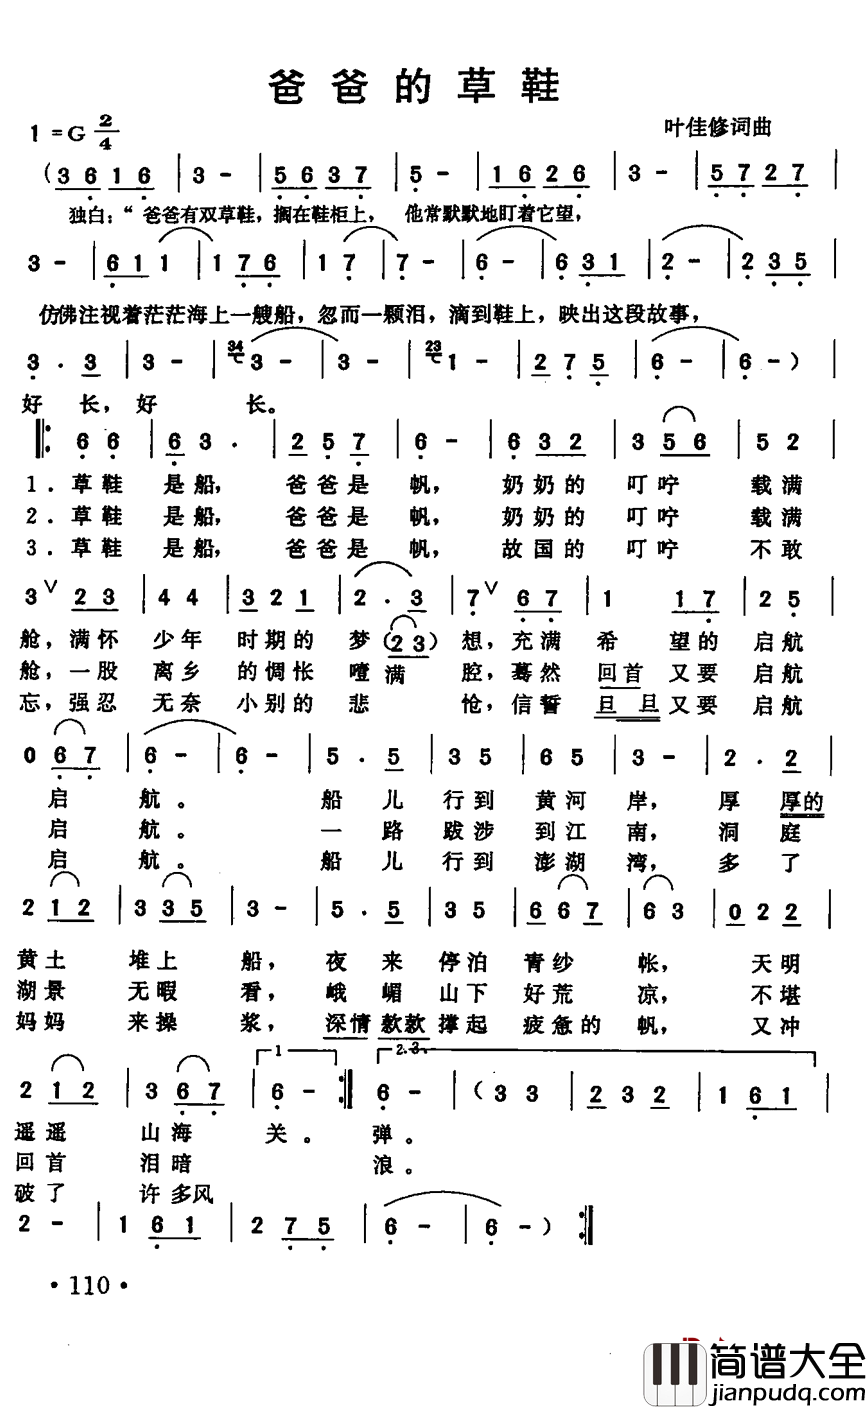 爸爸的草鞋
1=G 2/4
叶佳修词曲
(3 6 1 6 | 3 - | 5 6 3 7 | 5 - | 1 6 2 6 | 3 - | 5 7 2 7 |
独白:“爸爸有双草鞋,搁在鞋柜上, 他常默默地盯着它望,
3 - | 6 1 1 | 1 7 6 | 1 7 | 7 - | 6 - | 6 3 1 | 2 - | 2 3 5 |
仿佛注视着茫茫海上一艘船,忽而一颗泪,滴到鞋上,映出这段故事,
3 . 3 | 3 - | 34 3 - | 3 - | 23 1 - | 2 7 5 | 6 - | 6 - ) |
好 长,好 长。
‖: 6 6 | 6 3 . | 2 5 7 | 6 - | 6 3 2 | 3 5 6 | 5 2 |
1.草鞋 是船, 爸爸是 帆, 奶奶的 叮咛 载满
2.草鞋 是船, 爸爸是 帆, 奶奶的 叮咛 载满
3.草鞋 是船, 爸爸是 帆, 故国的 叮咛 不敢
3 ∨ 2 3 | 4 4 | 3 2 1 | 2 . 3 | 7 ∨ 6 7 | 1 1 7 | 2 5 |
舱,满怀 少年 时期的 梦(2 3) 想,充满 希 望的 启航
舱,一股 离乡 的惆怅 噎满 腔,蓦然 回首 又要 启航
忘,强忍 无奈 小别的 悲 怆,信誓 旦旦 又要 启航
0 6 7 | 6 - | 6 - | 5 . 5 | 3 5 | 6 5 | 3 - | 2 . 2 |
启 航。 船 儿 行到 黄河 岸, 厚 厚的
启 航。 一 路 跋涉 到江 南, 洞 庭
启 航。 船 儿 行到 澎湖 湾, 多 了
2 1 2 | 3 3 5 | 3 - | 5 . 5 | 3 5 | 6 6 7 | 6 3 | 0 2 2 |
黄土 堆上 船, 夜 来 停泊 青纱 帐, 天明
湖景 无暇 看, 峨嵋 山下 好荒 凉, 不堪
妈妈 来操 浆, 深情 款款 撑起 疲惫的 帆, 又冲
1 2.3.
2 1 2 | 3 6 7 | 6 - :‖ 6 - | ( 3 3 | 2 3 2 | 1 6 1 |
遥遥 山海 关。 弹。
回首 泪暗 浪。
破了 许多风
2 - | 1 6 1 | 2 7 5 | 6 - | 6 - ) :‖
·110·
简谱大全
jianpudq.com